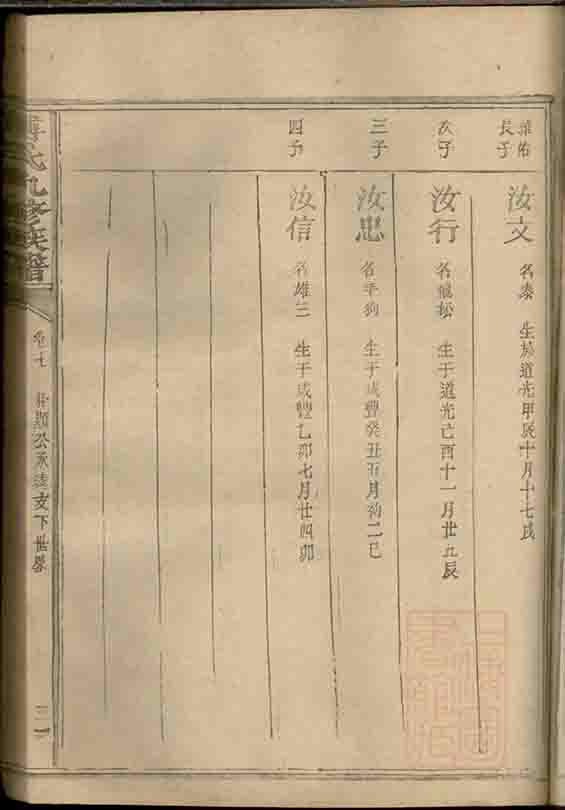 業佑
長子
汝文
名泰 生於道光甲辰十月十七戌
次子
汝行
名癩松 生于道光己酉十一月廿九辰
三子
汝忠
名羊狗 生于咸豐癸丑五月初二巳
四子
汝信
名雄三 生于咸豐乙卯七月廿四卯
氏九修族譜
卷七 公承 支下世系
三一